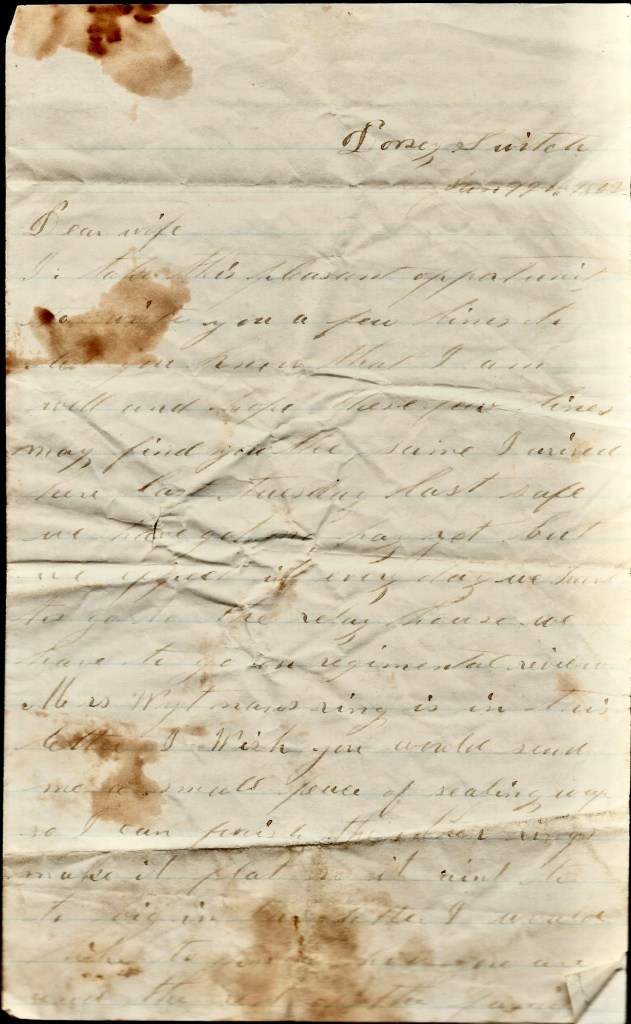 Dorsey Switch
Jan
Dear wife
I take this pleasant opportunit
to write you a few lines to
let you know that I am
well and hope these few lines
may find you the same I arived
here last Tuesday last safe
we have got no pay yet but
we expect it every day we have
to go to the relay house we
have to go on regimental review
Mrs Wytmans ring is in this
letter I Wish you would send
me a small peace of sealing wax
so I can finish the other rings
make it flat so it aint to
to big in the letter I would
like to know how you are
and the rest of the